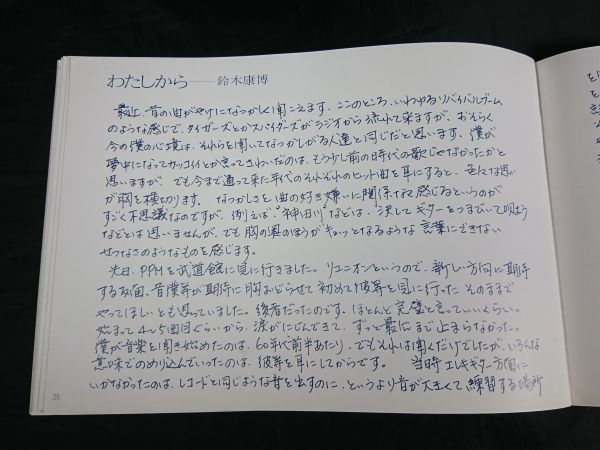 わたしから——鈴木康博
最近、昔の曲がやけになつかしく聞こえます。ここのところ、いわゆるリバイバルブーム
のような感じで、タイガーズとかスパイダーズがラジオから流れて来ますが、おそらく
今の僕の心境は、それらを聞いてなつかしがる人達と同じだと思います。僕が
夢中になってカッコイイとか言ってさわいだのは、もう少し前の時代の歌じゃなかったかと
思いますが、でも今まで通って来た年代のそれぞれのヒット曲を耳にすると、色々な思い
が胸を横切ります。なつかしさと曲の好き嫌いに関係なく感じるというのが
すごく不思議なのですが、例えば、"神田川"などは、決してギターをつまびいて唄おう
などとは思いませんが、でも胸の奥のほうがキュッとなるような言葉にできない
せつなさのようなものを感じます。
先日、PPMを武道館に見に行きました。リユニオンというので、新しい方向に期待
する反面、昔僕等が期待に胸おどらせて初めて彼等を見に行ったそのままで
やってほしいとも思っていました。後者だったのです。ほとんど完璧と言っていいくらい。
始まって4〜5曲目ぐらいから、涙がにじんできて、ずっと最后まで止まらなかった。
僕が音楽を聞き始めたのは、60年代前半あたり、でもそれは聞くだけでしたが、いろんな
意味でのめり込んでいったのは、彼等を耳にしてからです。 当時エレキギター方面に
いかなかったのは、レコードと同じような音を出すのに、というより音が大きくて練習する場所
25